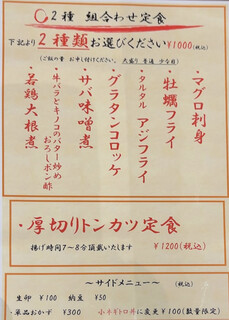 ２種 組合わせ定食
下記より２種類お選びください ¥1000(税込)
(ご飯の量 お申し付けください 大盛り 普通 少な目)
・マグロ刺身
・牡蠣フライ
・タルタル アジフライ
・グラタンコロッケ
・サバ味噌煮
・牛バラとキノコのバター炒め おろしポン酢
・若鶏大根煮
・厚切りトンカツ定食
揚げ時間7〜8分頂戴いたします ¥1200(税込)
〜サイドメニュー〜 (税込)
生卵 ¥100 納豆 ¥50
・単品おかず ¥300 小ネギトロ丼に変更 ¥100(数量限定)